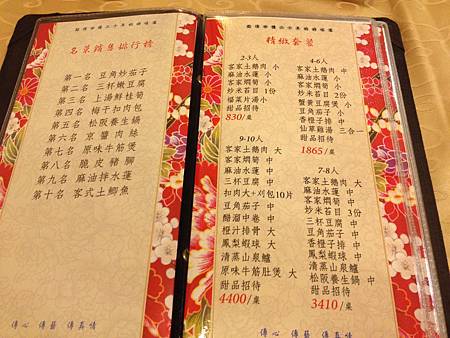 名菜銷售排行榜
第一名 豆角炒茄子
第二名 三杯嫩豆腐
第三名 上湯鮮桂筍
第四名 梅干扣肉包
第五名 松阪養生鍋
第六名 京醬肉絲
第七名 原味牛筋煲
第八名 脆皮豬腳
第九名 麻油拌水蓮
第十名 客式土鯽魚
傳心 傳藝 傳真情
精緻套餐
2-3人
客家土鵝肉 小
麻油水蓮 小
客家燜筍 小
炒米苔目 1份
福菜片湯 小
甜品招待
830/桌
4-6人
客家土鵝肉 中
麻油水蓮 小
客家燜筍 中
炒米苔目 2份
蟹黃豆腐煲 小
豆角茄子 小
香橙子排 中
仙草雞湯 三合一
甜品招待
1865/桌
9-10人
客家土鵝肉 大
客家燜筍 中
麻油水蓮 中
三杯豆腐 中
扣肉大+刈包10片
豆角茄子 中
醋溜中卷 中
橙汁排骨 大
鳳梨蝦球 大
清蒸山泉鱸
原味牛筋肚煲 大
甜品招待
4400/桌
7-8人
客家土鵝肉 大
麻油水蓮 中
客家燜筍 中
炒米苔目 3份
三杯豆腐 中
豆角茄子 中
香橙子排 中
鳳梨蝦球 中
清蒸山泉鱸
松阪養生鍋 中
甜品招待
3410/桌
傳心 傳藝 傳真情